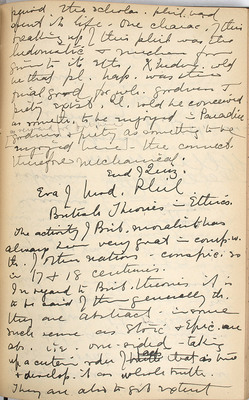 period this scholas. phil. had
spent its life - One charac. of this
breaking up of this phil. was the
hedonistic
given to its Eth. X
that pl. hap. was
for wh. goodness &
piety exist. wd. be conceived
as someth. to be enjoyed in Paradise
goodness & piety as something to be
enjoyed here - the connect.
therefore mechanical.
End of Quiz.
Era of Mod. Phil.
British Theories in Ethics.
The activity of Brit. moralist has
always been very great in comp. w.
th. of other nations - conspic. so
in 17 & 18 centuries.
In regard to Brit. theories it is
to be said of them generally th.
they are abstract - in some
such sense as Stoic & Epic. are
abs. i.e. one-sided - taking
up a certain side of that is true
& develop. it as whole truth.
They are also to gt. extent